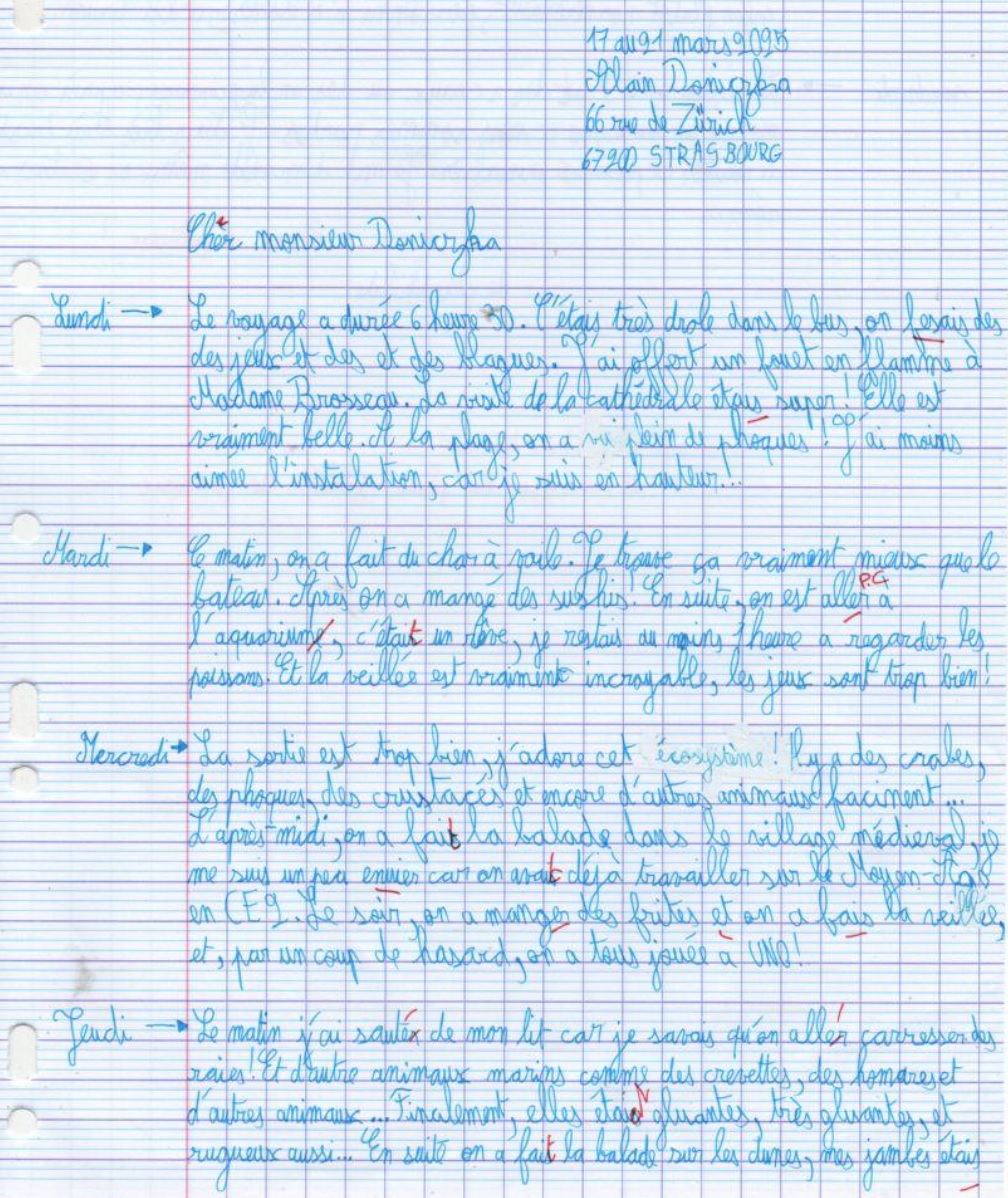 17 au 21 mars 2025
Alain Doniczka
66 rue de Zürich
67200 STRASBOURG
Cher monsieur Doniczka
Lundi → Le voyage a durée 6 heure 30. C'étais très drole dans le bus, on fesais des
des jeux et des et des blagues. J'ai offert un fouet en flamme à
Madame Brosseau. La visite de la cathédrale étais super! Elle est
vraiment belle. A la plage, on a vu plein de phoques! J'ai moins
aimée l'instalation, car je suis en hauteur...
Mardi → Ce matin, on a fait du char à voile. Je trouve ça vraiment mieux que le
bateau. Après on a mangé des sushis! En suite, on est aller à
P.C
l'aquariume, c'était un rêve, je restais au moins 1 heure a regarder les
poissons. Et la veillée est vraiment incroyable, les jeux sont trop bien!
Mercredi → La sortie est trop bien, j'adore cet écosystème! Il y a des crabes,
des phoques, des crustacés et encore d'autres animaux facinent...
L'après-midi, on a fait la balade dans le village médieval, je
me suis un peu ennuier car on avait déjà travailler sur le Moyen-Âge
en CE2. Le soir, on a manger des frites et on a fais la veillée,
et, par un coup de hasard, on a tous jouée à UNO!
Jeudi → Le matin j'ai sauté de mon lit car je savais qu'on aller carresser des
raies! Et d'autre animaux marins comme des crevettes, des homares et
d'autres animaux... Finalement, elles étais gluantes, très gluantes, et
rugueux aussi... En suite on a fait la balade sur les dunes, mes jambes étais